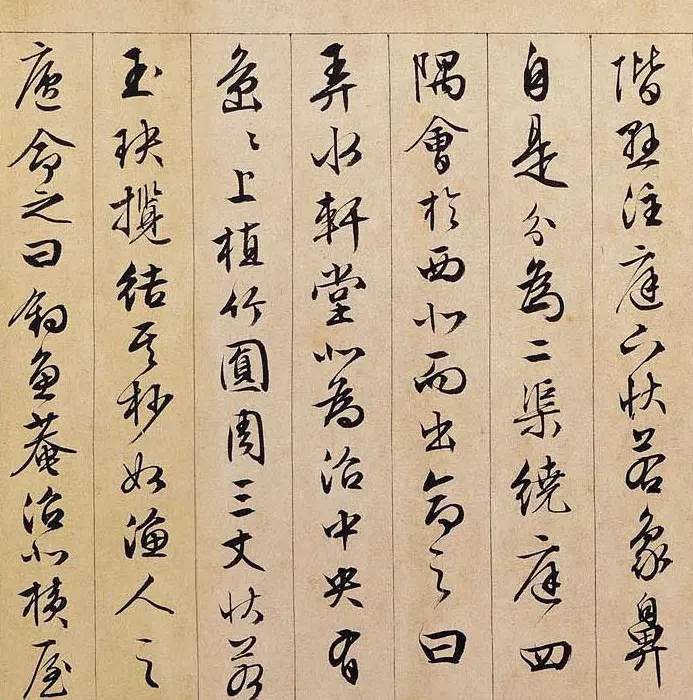 階懸注庭下状若象鼻
自是分為二渠繞庭四
隅會於西北而出命之曰
弄水軒堂北為沼中央有
島〻上植竹圓周三丈状若
玉玦攬結其杪如漁人之
廬命之曰釣魚菴沼北横屋